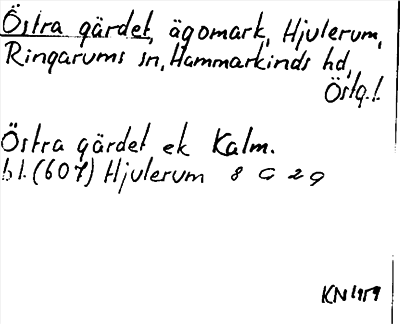 Östra gärdet, ägomark, Hjulerum,
Ringarums sn, Hammarkinds hd,
Östg.l.
Östra gärdet ek Kalm.
bl. (607) Hjulerum 8 G 2 g
KN 1959